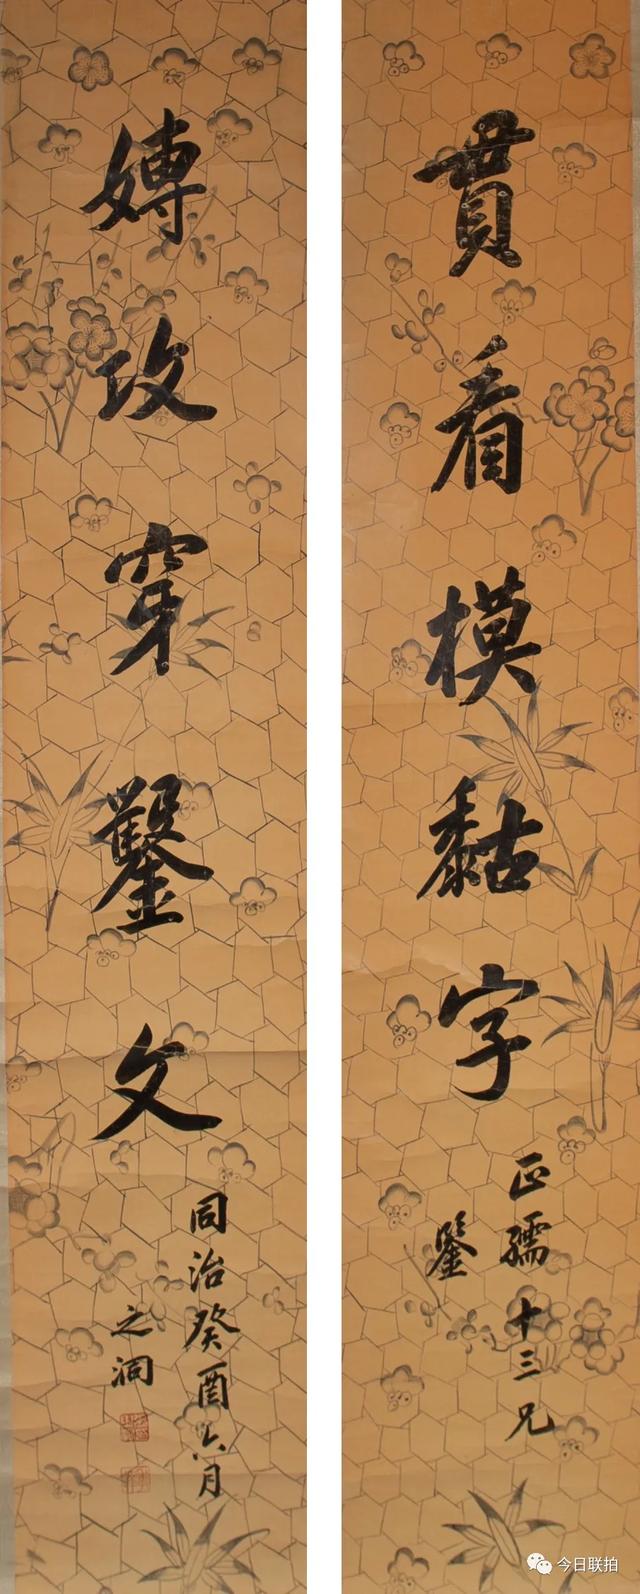 貫看模黏字
正孺十三兄
鑒
嫥攻穿鑿文
同治癸酉六月
之洞
今日联拍